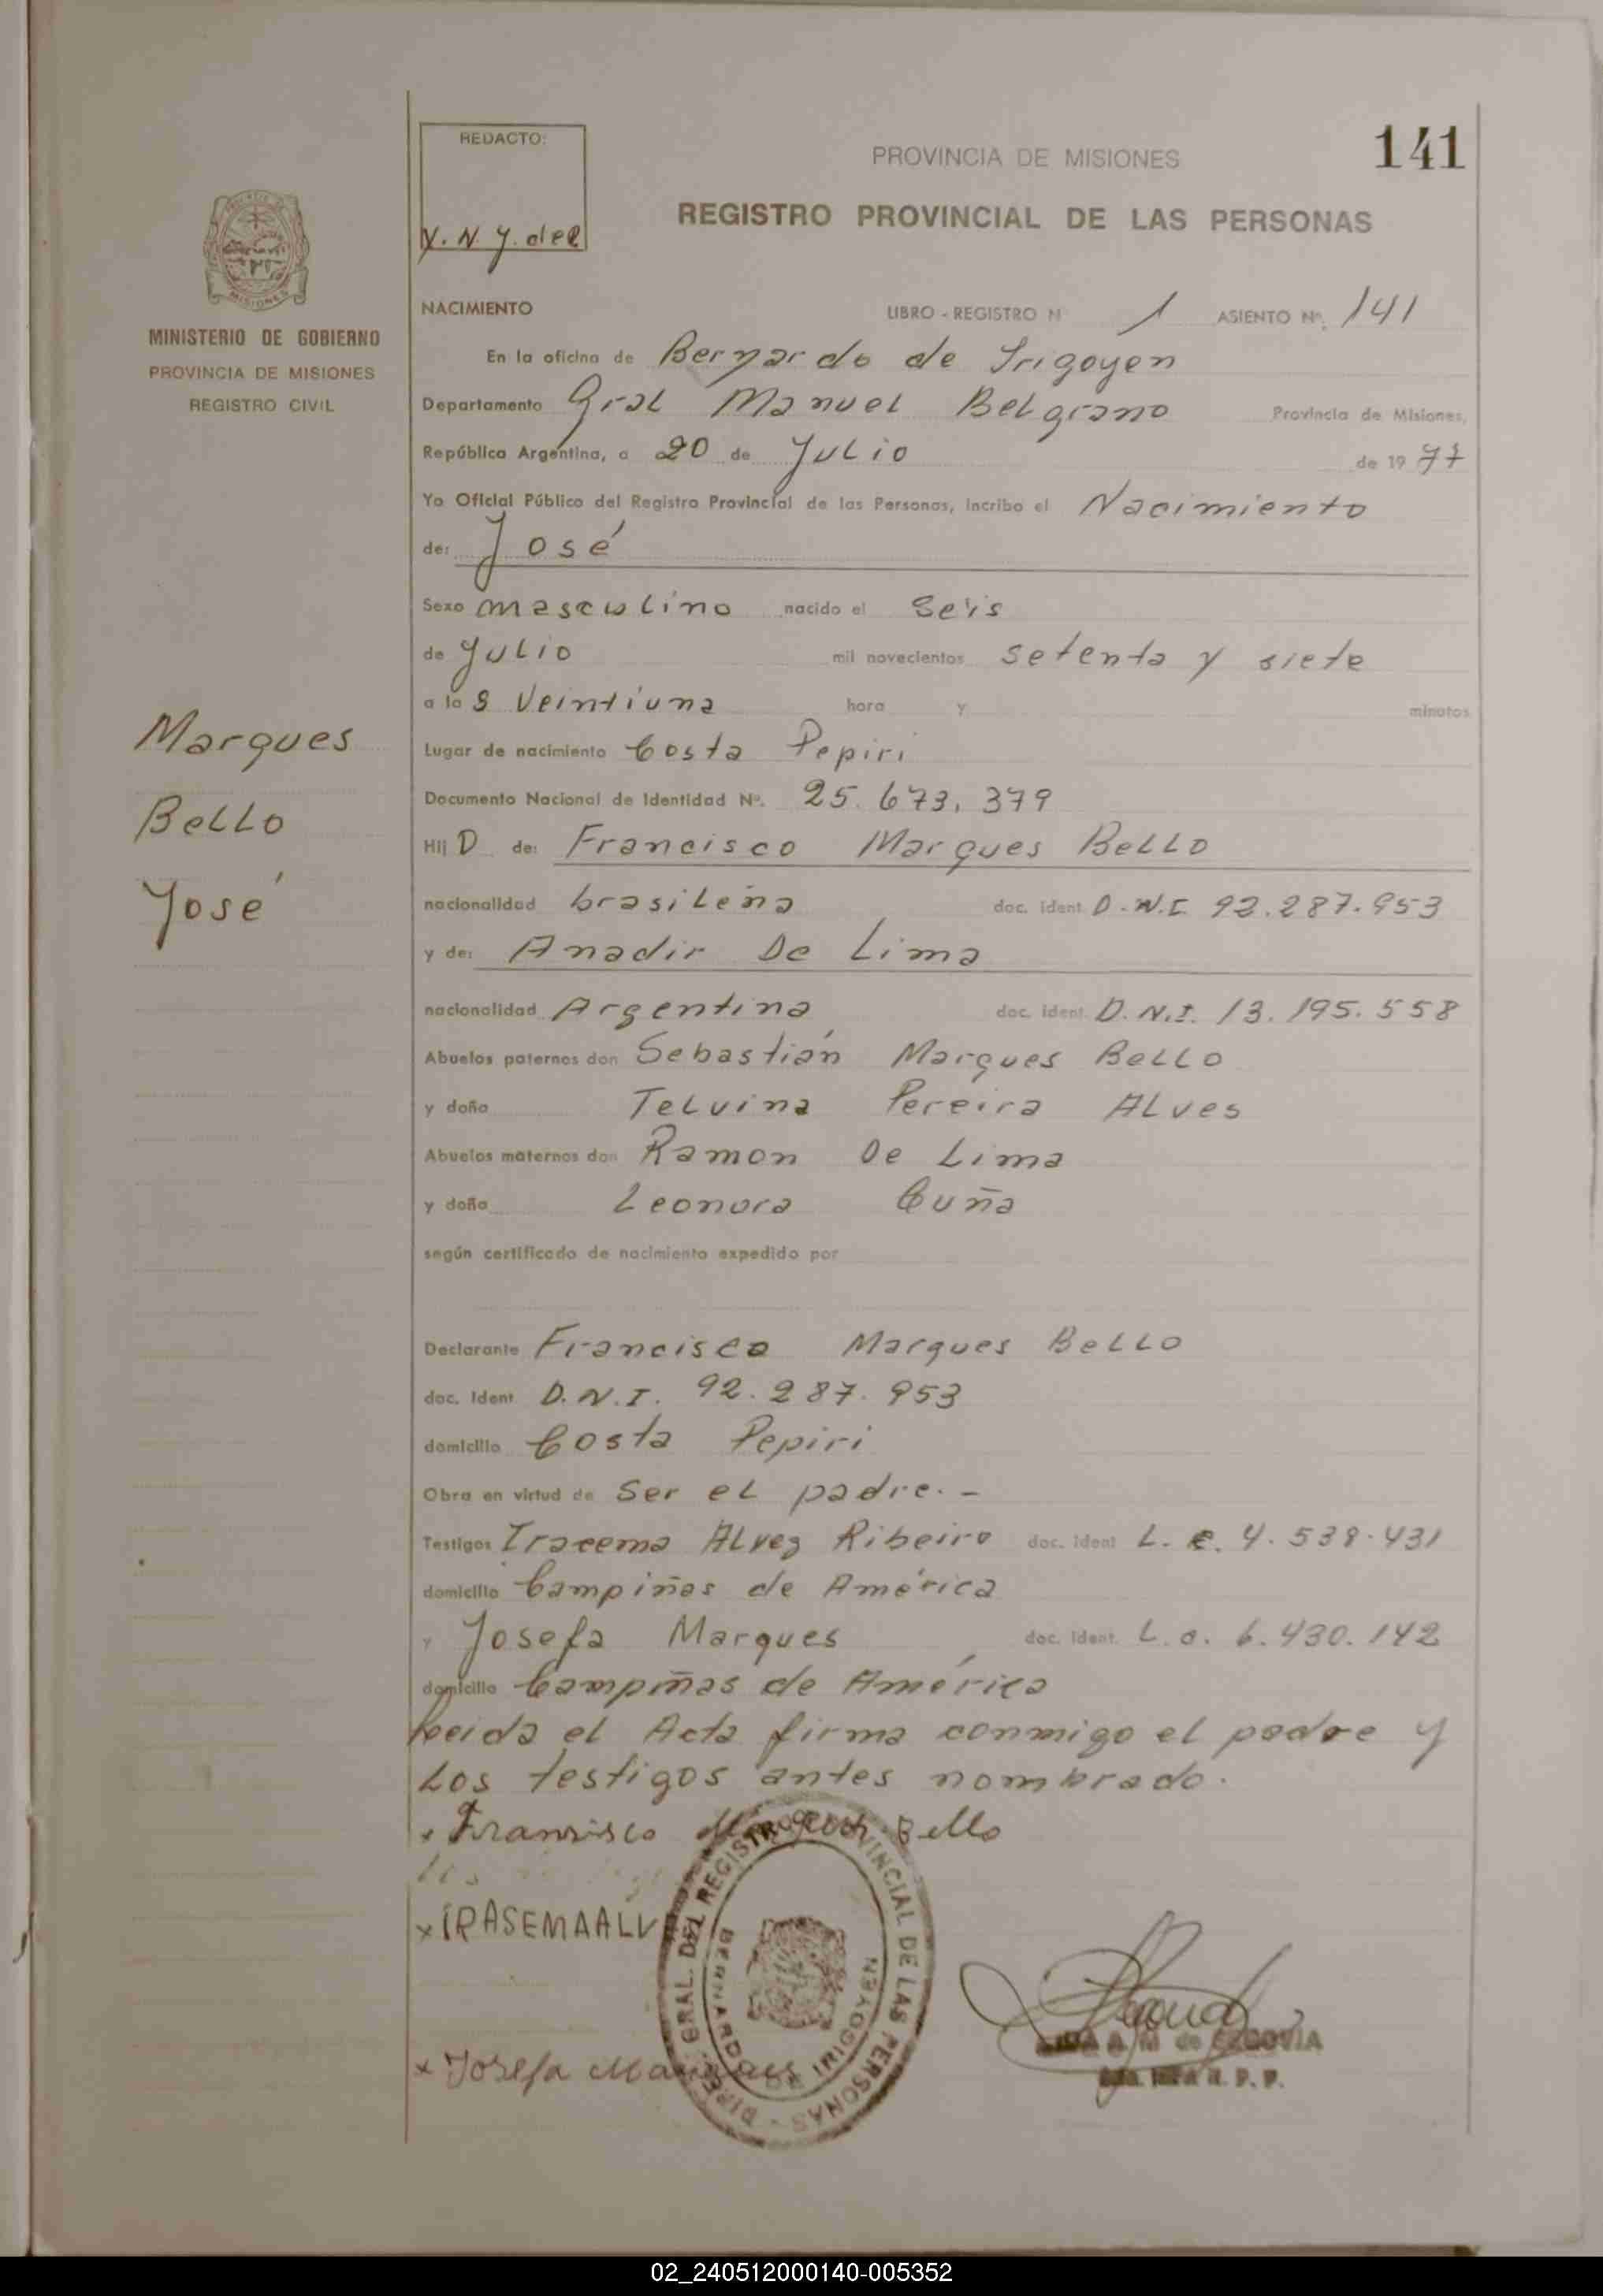 REDACTO:
PROVINCIA DE MISIONES
141
REGISTRO PROVINCIAL DE LAS PERSONAS
MINISTERIO DE GOBIERNO
PROVINCIA DE MISIONES
REGISTRO CIVIL
NACIMIENTO LIBRO - REGISTRO N 1 ASIENTO Nº. 141
En la oficina de Bernardo de Irigoyen
Departamento Gral Manuel Belgrano Provincia de Misiones,
República Argentina, a 20 de Julio de 19 77
Yo Oficial Público del Registro Provincial de las Personas, incribo el Nacimiento
de: José
Sexo masculino nacido el Seis
de Julio mil novecientos setenta y siete
a la s veintiuna hora y minutos
Marques
Bello
José
Lugar de nacimiento Costa Pepiri
Documento Nacional de Identidad Nº. 25.673.379
Hij O de: Francisco Marques Bello
nacionalidad brasileña doc. ident. D.N.I. 92.287.953
y de: Anadir De Lima
nacionalidad Argentina doc. ident. D.N.I. 13.195.558
Abuelos paternos don Sebastián Marques Bello
y doña Telvina Pereira Alves
Abuelos maternos don Ramon De Lima
y doña Leonora Cuña
según certificado de nacimiento expedido por
Declarante Francisco Marques Bello
doc. Ident D.N.I. 92.287.953
domicilio Costa Pepiri
Obra en virtud de Ser el padre.-
Testigos Iracema Alvez Ribeiro doc. ident L. 4.538.431
domicilio Campiñas de América
y Josefa Marques doc. ident. L. 6.430.142
domicilio Campiñas de América
Leida el Acta firma conmigo el padre y
los testigos antes nombrado.
x Fransisco Bello
x IRASEMAALV
x Josefa Marques
DIREC. GRAL. DEL REGISTRO PROVINCIAL DE LAS PERSONAS -
BERNARDO DE IRIGOYEN
A. M de SEGOVIA
02_240512000140-005352